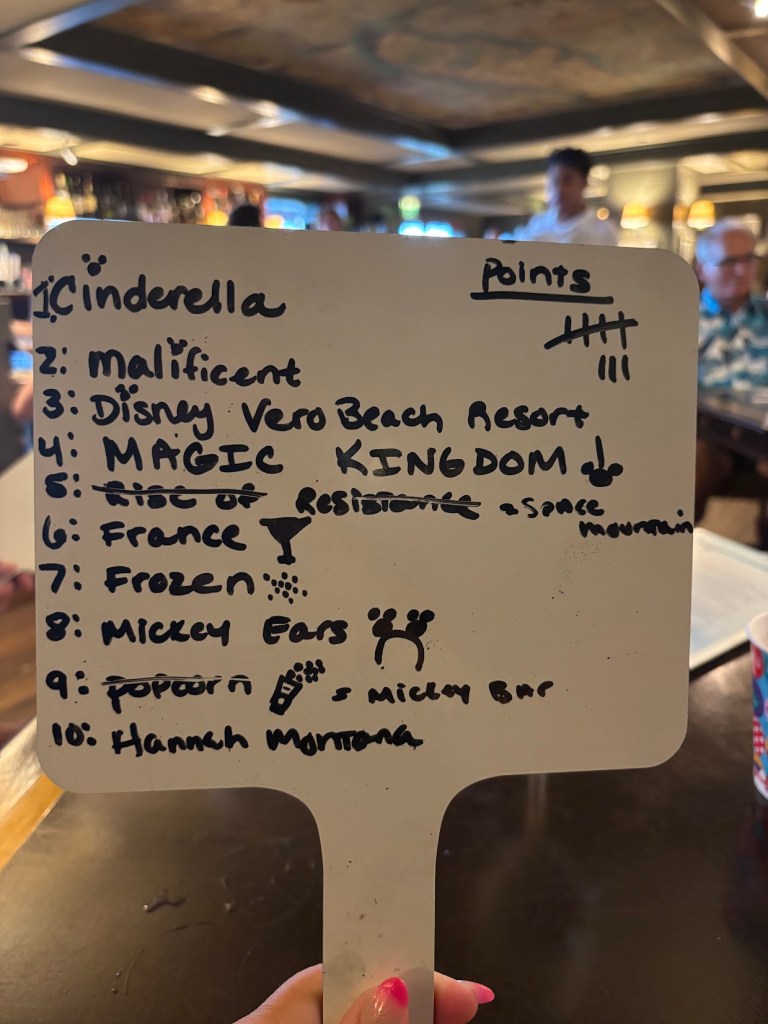 1. Cinderella
Points
2: Malificent
3: Disney Vero Beach Resort
4: MAGIC KINGDOM
5: Rise of Resistance = Space
mountain
6: France
7: Frozen
8: Mickey Ears
9: popcorn = Mickey Bar
10: Hannah Montana